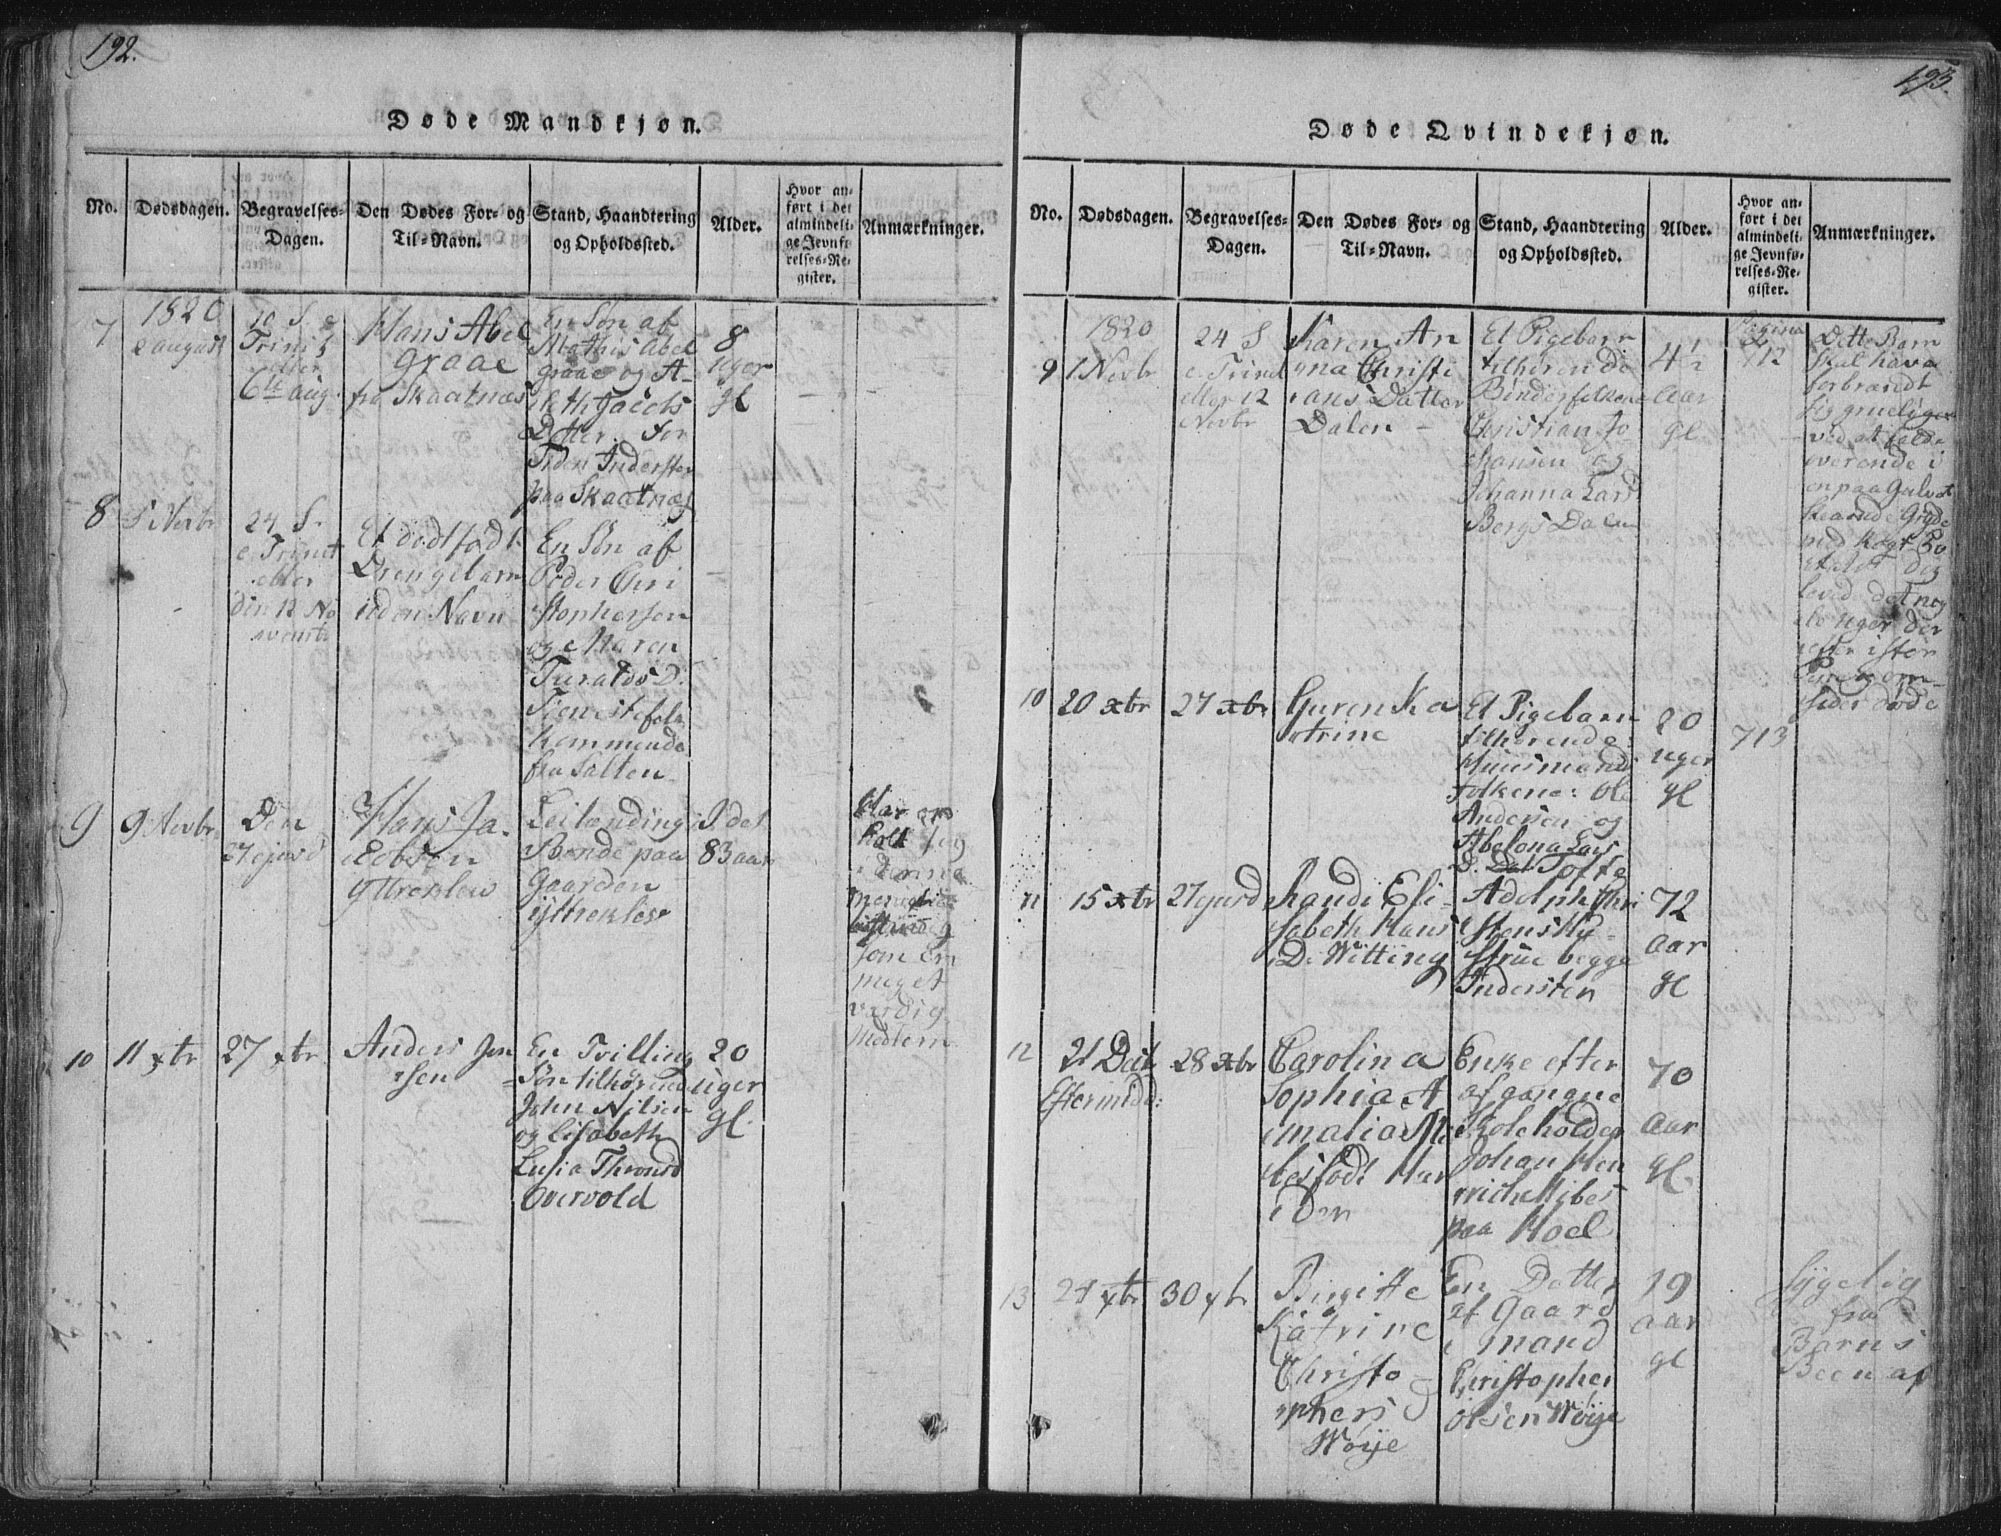 192.
Døde Mandkjøn.
No.
Dødsdagen.
Begravelses-
Dagen.
Den Dødes For- og
Til-Navn.
Stand, Haandtering
og Opholdssted.
Alder.
Hvor an-
ført i det
almindeli-
ge Jevnfø-
relses-Re-
gister.
Anmærkninger.
7
1820
2 august
10 S. e
Trinit
eller
6te aug.
Hans Abel
graae
fra Skaatnæs
En Søn af
Mathis Abel
graae og A-
Jacobs
Datter. for
Tiden Inderster
paa Skaatnæs
8
uger
gl
8
5 Novbr
24 S.
e. Trinit
eller
den 12 No
vembr
Et dødtfødt
Drengebarn
uden Navn
En Søn af
Peder Chri
stophersen
og Maren
Turalds D.
Tienistefolk
kommende
fra Salten
9
9 Novbr
Den
27 ejusd
Hans Ja-
cobsen
Yttreklew
Leilænding
Bonde paa
Gaarden
Yttreklev
I det
83 aar
Har op
holt sig
i denne
menighed
som en
meget
værdig
Medlem
10
11 xbr
27 xbr
Anders Jon
sen
En Tvilling
Søn tilhørende
John Nilsen
og Lisabeth
Lusia Thronsd
Overvold
20
uger
gl.
193.
Døde Qvindekjøn.
No.
Dødsdagen.
Begravelses-
Dagen.
Den Dødes For- og
Til-Navn.
Stand, Haandtering
og Opholdssted.
Alder.
Hvor an-
ført i det
almindeli-
ge Jevnfø-
relses-Re-
gister.
Anmærkninger.
9
1820
1 Novbr
24 S
e. Trinit
eller 12
Novbr
Karen An
na Christi
ans Datter
Dalen
Et Pigebarn
tilhørende
Bønderfolkene
Christian Jo-
hansen og
Johanna Lars
Bergs Dalen
4½
Aar
gl
Pagina
712
Dette Barn
skal have
forbrændt
sig grueligen
ved at falde
overende i
en paa Gulvet
Gryde
med kogt
leved det
længer der
efter
døde
10
20 xbr
27 xbr
Guren Ka
trine
Et Pigebarn
tilhørende
Huusmands
Folkene: Ole
Andersen og
Abelona Lars
D. Dal Tofte
20
uger
gl
713
11
15 xbr
27 ejusd
Randi Eli-
sabeth Hans
D. Witting
Adolph Chri
stens Hu-
strue begge
Indersten
72
aar
gl
12
21 Dec
Eftermidd:
28 xbr
Carolina
Sophia A
malia
født Har
den
Enke efter
afgangne
Skoleholder
Johan Hen
rich Mibes
paa Moel
70
aar
gl.
13
21 xbr
30 xbr
Birgitte
Katrine
Christo
phers D
Wøije
En Datter
af Gaard
mand
Christopher
Olsen Wøije
19
aar
gl
Sygelig
fra
Barns
Been af